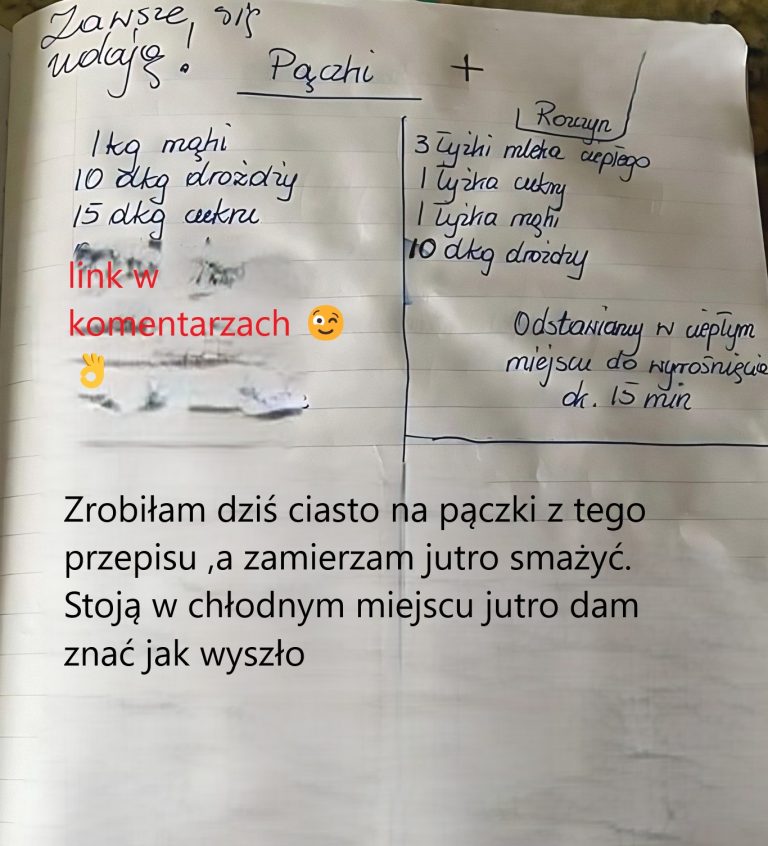 Zawsze, się
udają!
Pączki +
1 kg mąki
10 dkg drożdży
15 dkg cukru
link w
komentarzach 😉
👌
Rozczyn
3 łyżki mleka ciepłego
1 łyżka cukry
1 łyżka mąki
10 dkg drożdży
Odstawiamy w ciepłym
miejscu do wyrośnięcia
ok. 15 min
Zrobiłam dziś ciasto na pączki z tego
przepisu ,a zamierzam jutro smażyć.
Stoją w chłodnym miejscu jutro dam
znać jak wyszło